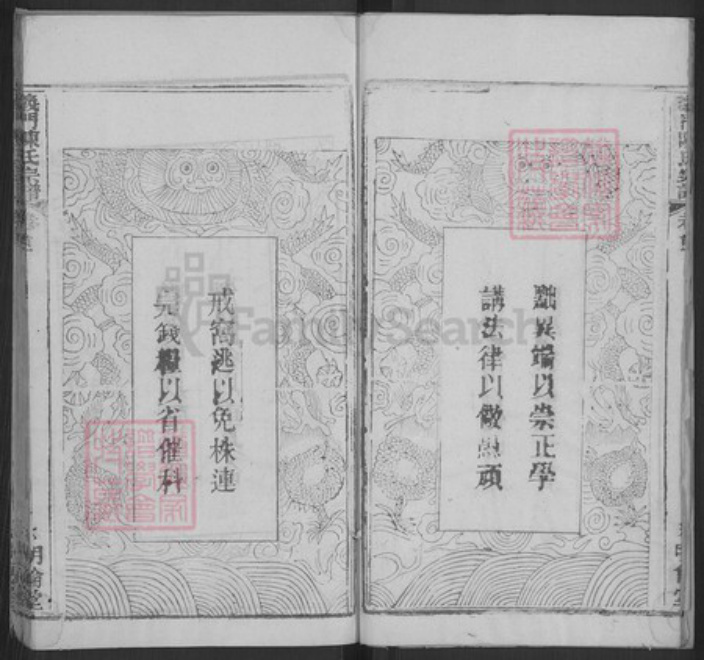 黜異端以崇正學
講法律以儆愚頑
戒窩逃以免株連
完錢糧以省催科
義門陳氏宗譜
卷首
明倫堂
FamilySearch